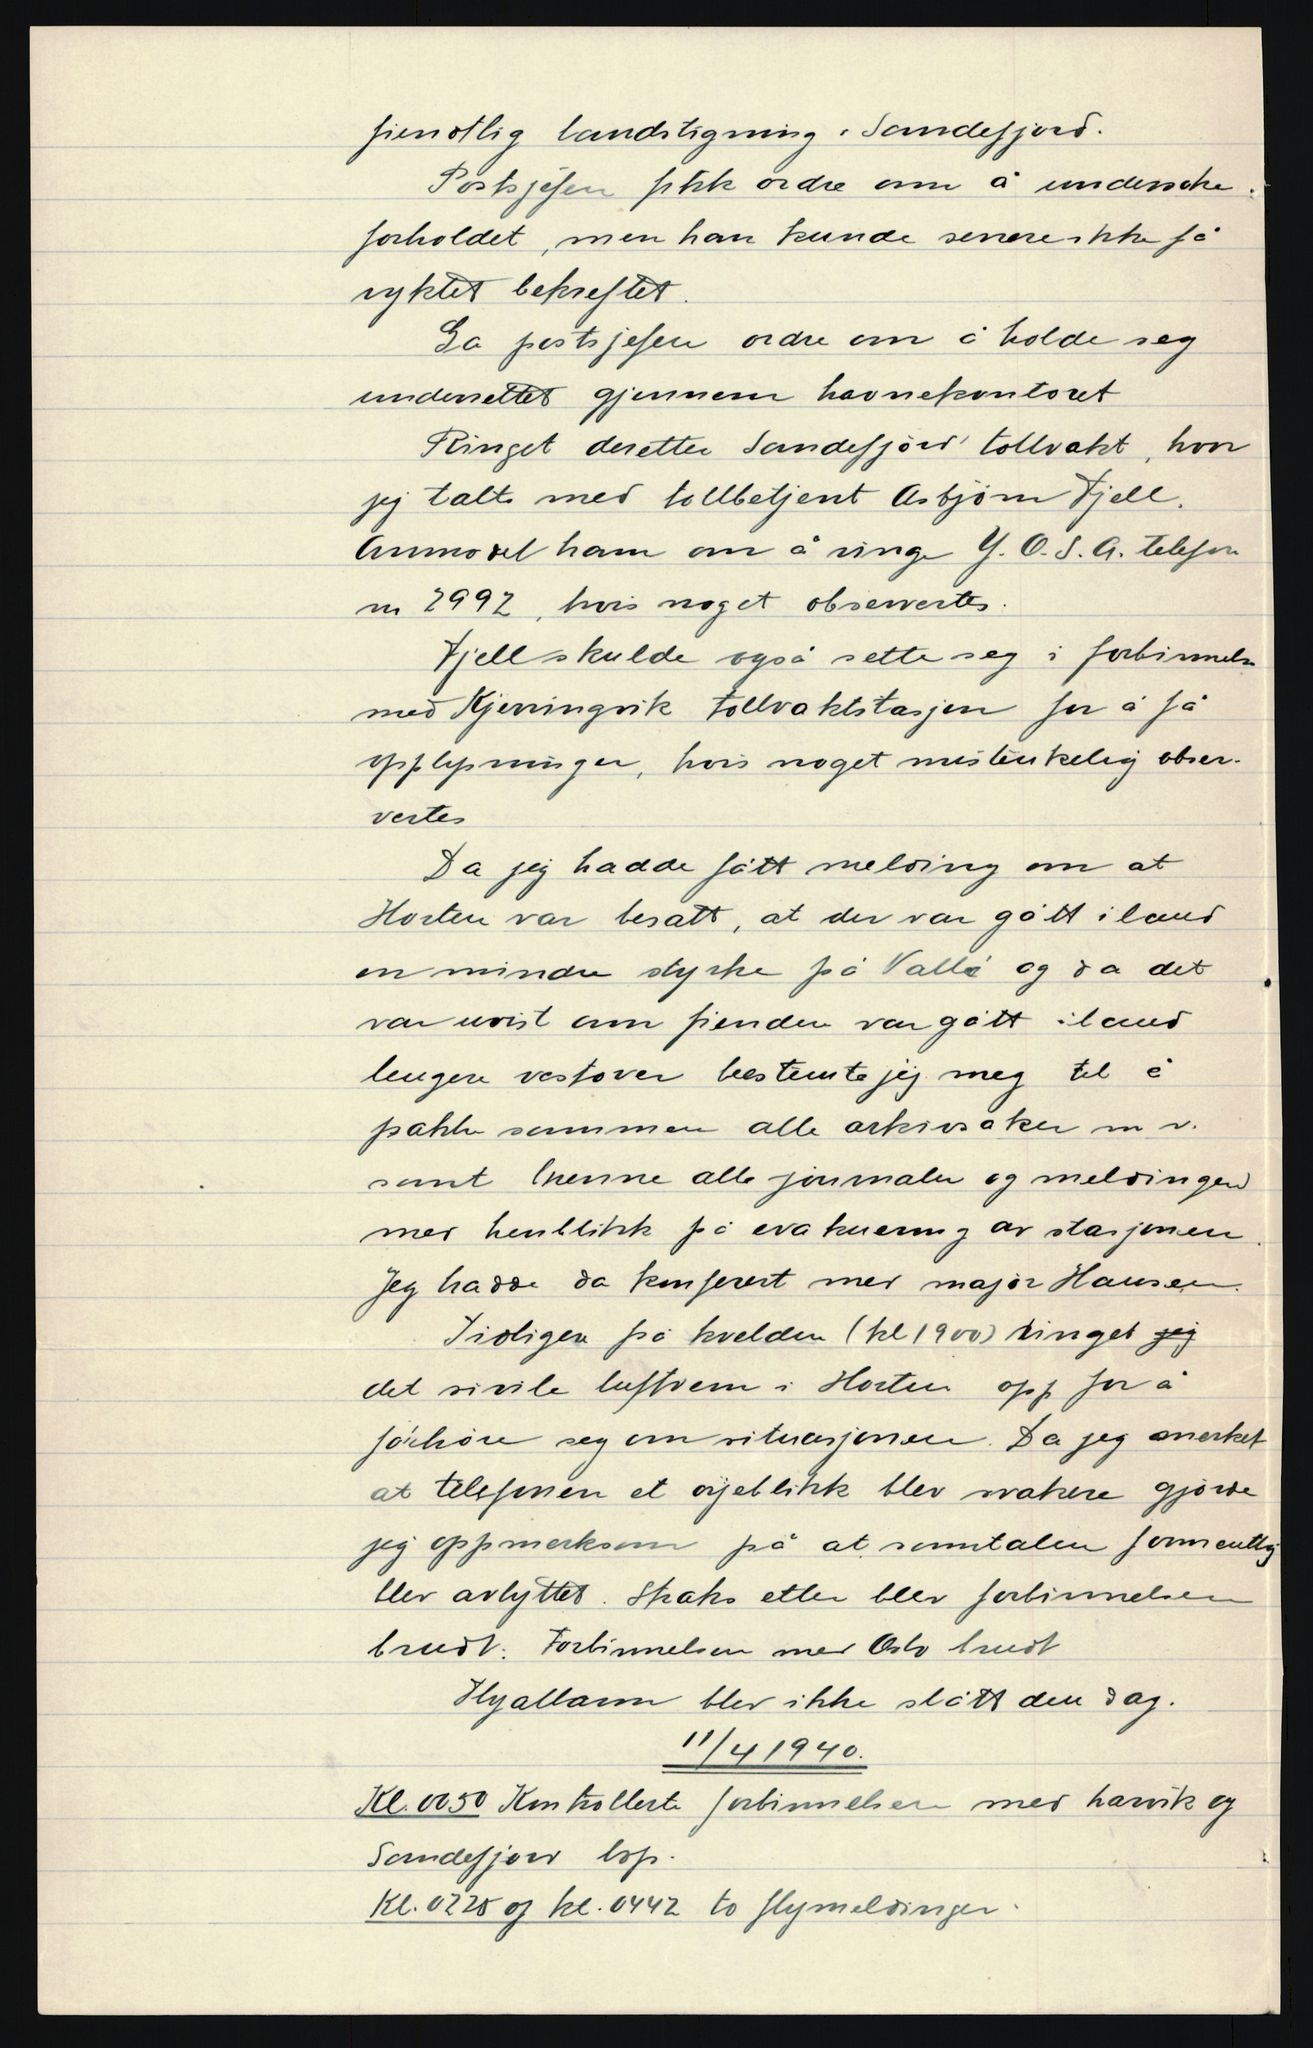 fiendtlig landstigning i Sandefjord.
Postsjefen fikk ordre om å undersøke
forholdet, men han kunde senere ikke få
ryktet bekreftet.
Ga postsjefen ordre om å holde seg
underrettet gjennem havnekontoret
Ringet deretter Sandefjord tollvakt, hvor
jeg talte med tollbetjent Asbjørn Fjell.
Anmodet ham om å ringe Y.O.S.A. telefon
nr 2992, hvis noget observertes.
Fjell skulde også sette seg i forbinnelse
med Kjerringvik tollvaktstasjon for å få
opplysninger, hvis noget mistenkelig obser-
vertes
Da jeg hadde fått melding om at
Horten var besatt, at der var gått iland
en mindre styrke på Vallø og da det
var uvist om fienden var gått iland
lengere vestover bestemte jeg meg til å
pakke sammen alle arkivsaker m v.
samt brenne alle journaler og meldinger
med henblikk på evakuering av stasjonen.
Jeg hadde da konferert med major Hansen.
Tidligere på kvelden (kl 1900) ringet jeg
det sivile luftvern i Horten opp for å
forhøre seg om situasjonen. Da jeg merket
at telefonen et øyeblikk blev svakere gjorde
jeg oppmerksom på at samtalen formentlig
blev avlyttet. Straks etter blev forbinnelsen
brudt. Forbinnelsen med Oslo brudt
Flyalarm blev ikke slått den dag.
11/4 1940.
Kl. 0050 Kontrollerte forbinnelsen med Larvik og
Sandefjord lsp.
Kl. 0225 og kl. 0442 to flymeldinger.